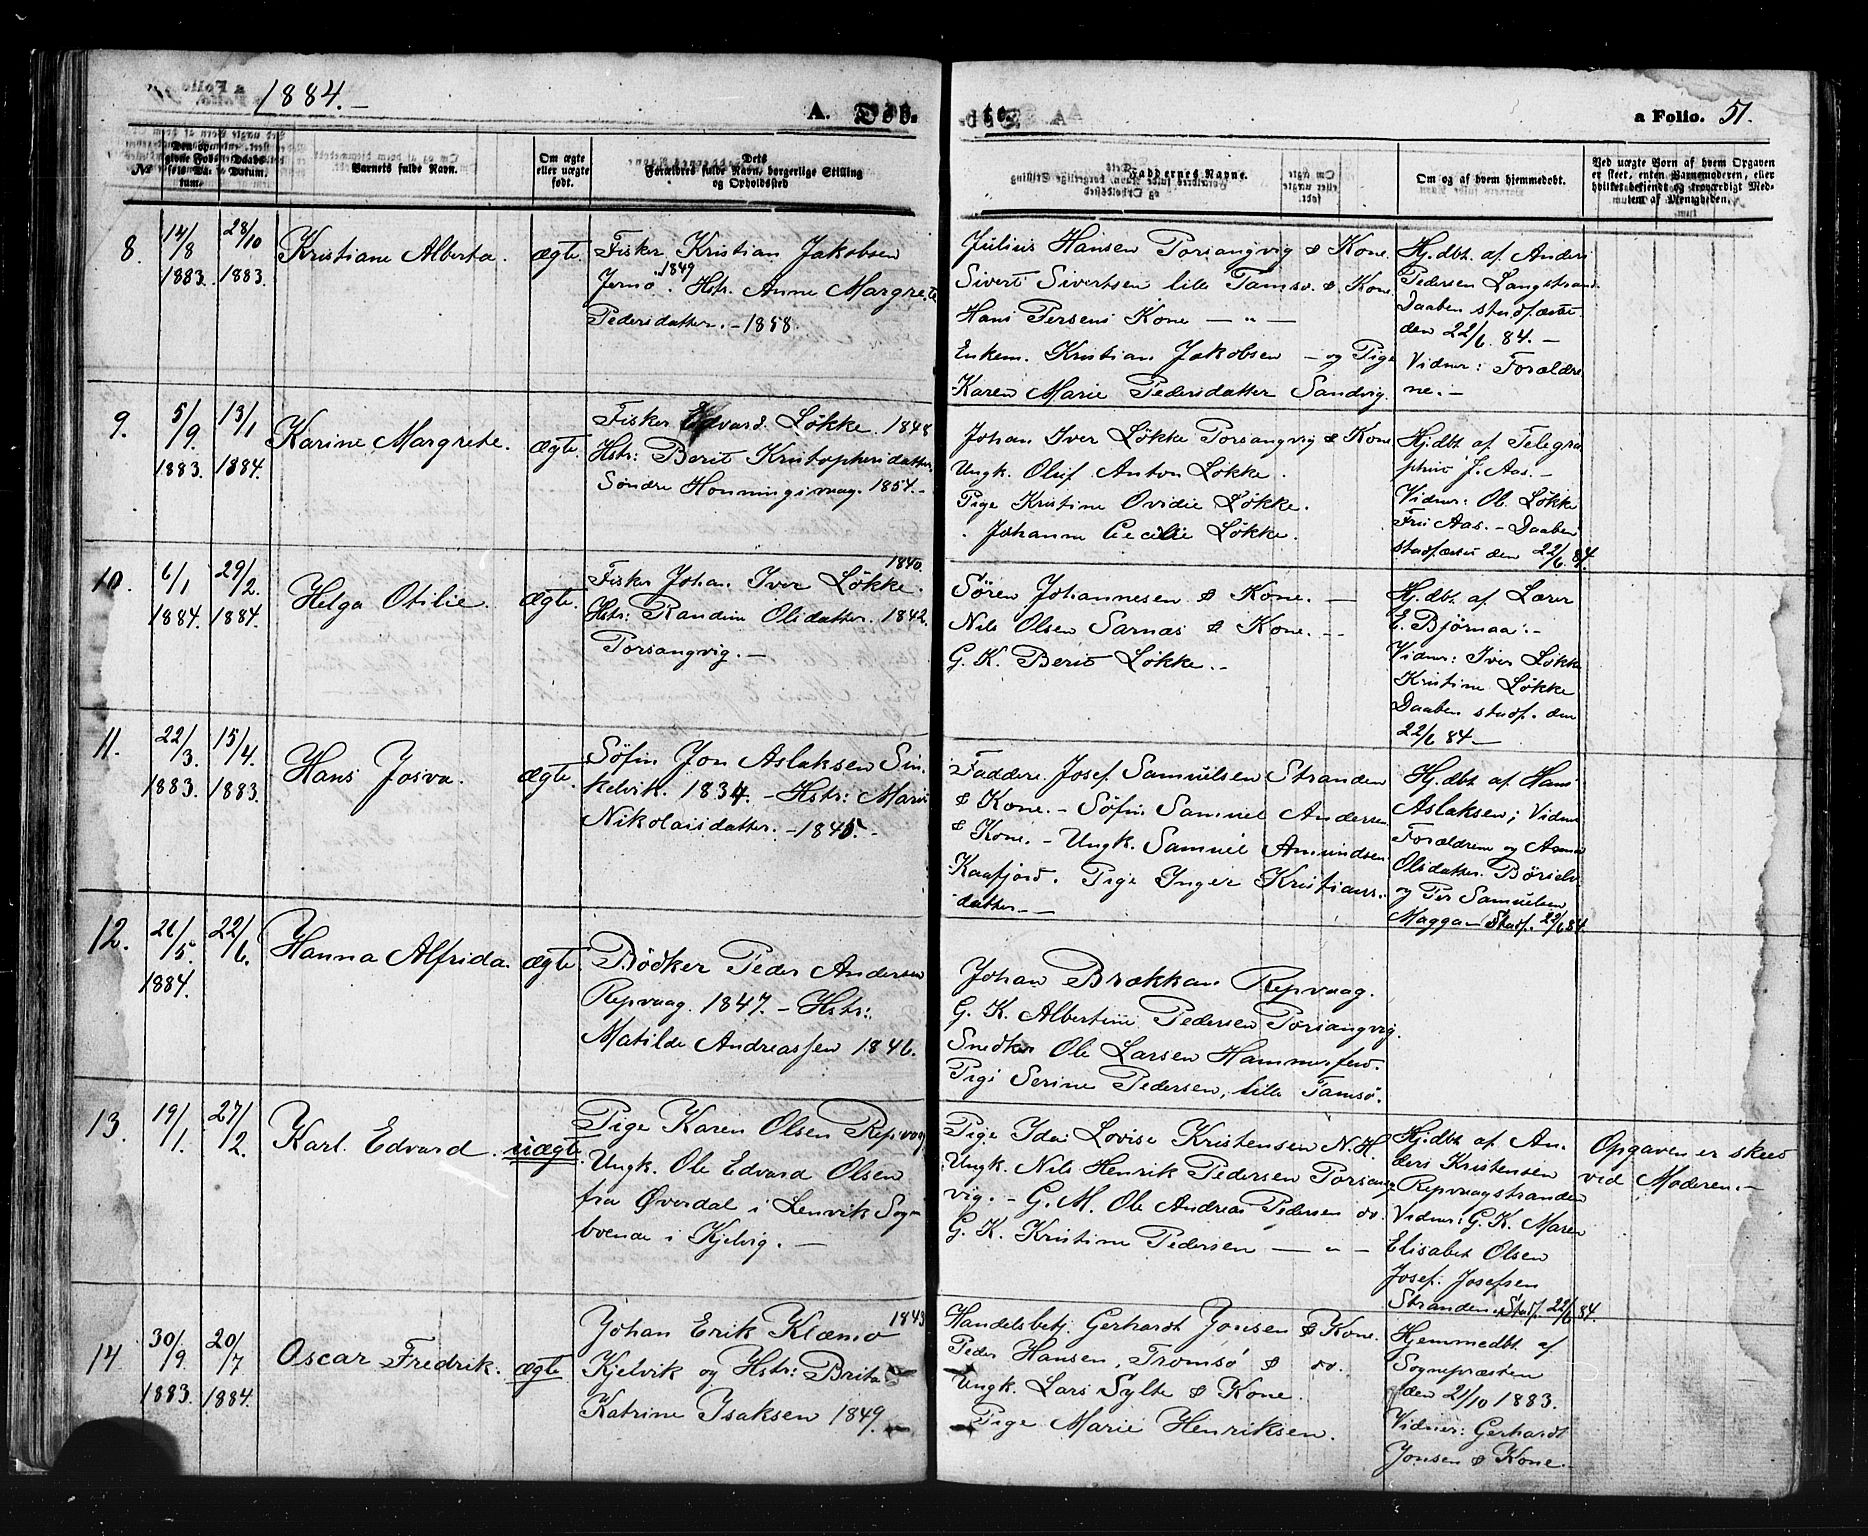 1884.-
A. Døb-
te.
a Folio. 51.
No
Den op-
givne Fød-
sels Da-
tum.
Daabs
Datum.
Barnets fulde Navn.
Om ægte
eller uægte
født.
Dets
Forældres fulde Navn, borgerlige Stilling
og Opholdssted
Faddernes Navne.
Om og af hvem hjemmedøbt.
Ved uægte Børn af hvem Opgaven
er skeet, enten Barnemoderen, eller
hvilket bekjendt og troværdigt Med-
lem af Menigheden.
8.
14/8
1883.
28/10
1883.
Kristiane Alberta.
ægte.
Fisker Kristian Jakobsen
Jernö. 1849 Hstr. Anne Margrete
Pedersdatter. - 1858.
Julius Hansen Porsangvig & Kone.
Sivert Sivertsen lille Tamsö. & Kone
Hans Persens Kone — " —
Enkem. Kristian Jakobsen — og Pige
Karen Marie Pedersdatter Sandvig.
Hj.dbt. af Anders
Pedersen Langstrand.
Daaben stadfæstet
den 22/6. 84. —
Vidner: Forældre
ne. —
9.
5/9
1883.
13/1
1884.
Karine Margrete.
ægte.
Fisker Edvard Løkke. 1848
Hstr: Berit Kristophersdatter.
Söndre Honningsvaag. 1854. -
Johan Iver Løkke Porsangvig & Kone
Ungk. Oluf Anton Løkke.
Pige Kristine Ovidie Løkke.
. Johanne Cecilie Løkke.
Hj.dbt af Telegra
phist J. Aas. -
Vidner: Ob. Løkke
Fru Aas. - Daaben
stadfæstet den 22/6 84.
10.
6/1
1884.
29/2.
1884.
Helga Otilie.
ægte.
Fisker Johan Iver Løkke. 1840.
Hstr: Randine Olsdatter. 1842.
Porsangvig. —
Sören Johannesen & Kone. —
Nils Olsen Sarnæs & Kone. - -
G. K. Berit Løkke. -
Hj.dbt. af Lærer
E. Bjørnaa. -
Vidner: Iver Løkke
Kristine Løkke
Daaben stadf. den
22/6 84 —
11.
22/3
1883.
15/4.
1883.
Hans Josva.
ægte.
Søfin Jon Aslaksen Sin-
kelvik. 1834. - Hstr: Marit
Nikolaisdatter. - 1845. -
Faddere. Josef Samuelsen Stranden
& Kone. - Søfin Samuel Andersen
& Kone. - Ungk. Samuel Amundsen
Kaafjord. Pige Inger Kristians-
datter —
Hj.dbt af Hans
Aslaksen; Vidner
Forældrene og Anna
Olsdatter. Börselv
og Per Samuelsen
Magga — Stadf. 22/6 84.
12.
26/5.
1884.
22/6.
Hanna Alfrida.
ægte.
Bödker Peder Andersen
Repvaag. 1847. - Hstr:
Matilde Andreassen 1846.
Johan Brækkan Repvaag.
G. K. Albertine Pedersen Porsangvig.
Snedker Ole Larsen Hammerfest.
Pige Serine Pedersen, lille Tamsö.
13.
19/1.
27/2.
Karl Edvard.
uægte.
Pige Karen Olsen Repvaag
Ungk. Ole Edvard Olsen
fra Øverdal i Lenvik Sogn
boende i Kjelvig. —
Pige Ida Lovise Kristensen N. H.
Ungk. Nils Henrik Pedersen Porsang-
vig. - G. M. Ole Andreas Pedersen do.
G. K. Kristine Pedersen — " -
Hj.dbt af An-
ders Kristensen
Repvaagstranden
Vidner: G. K. Maren
Elisabet Olsen
Josef. Josefsen
Stranden. Stadf. 22/6 84.
Opgaven er skeed
ved Moderen. -
14
30/9.
1883.
20/7
1884.
Oscar Fredrik.
ægte
Johan Erik Klæmo 1843
Kjelvik og Hstr: Brita
Katrine Isaksen 1849.
Handelsbetj. Gerhardt Jonsen & Kone.
Peder Hansen, Tromsö & do.
Ungk. Lars Sylte & Kone.
Pige Marie Henriksen.
Hjemmedbt. af
Sognepræsten
den 21/10 1883.
Vidner: Gerhardt
Jonsen & Kone. -